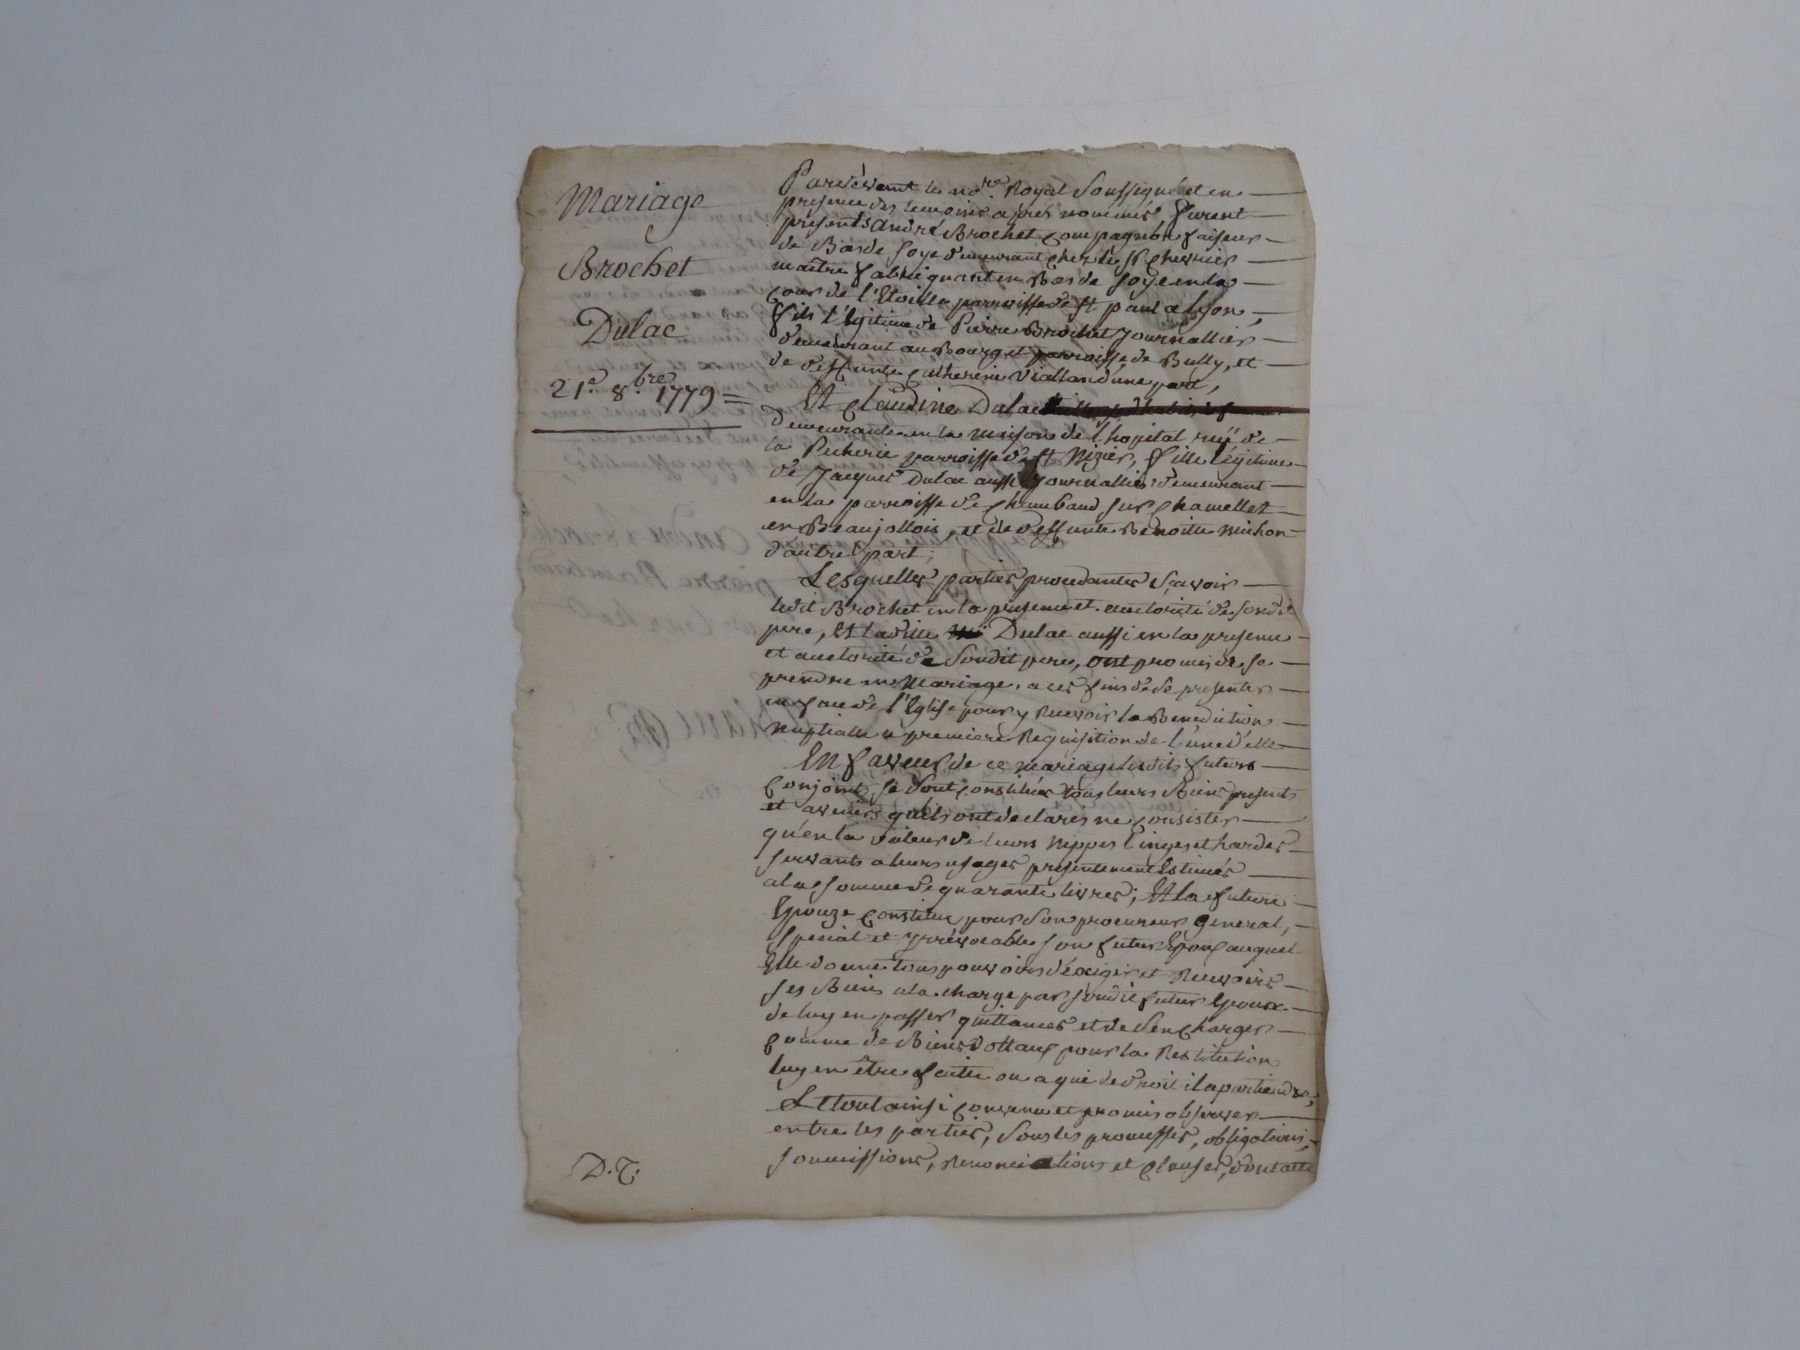 Mariage
Brochet
Dulac
21e. 8.bre 1779
Pardevant le no.re Royal Soussigné et en
presence des temoins apres nommés, furent
presents André Brochet Compagnon faiseur
de Bas de soye demeurant chez le Sr.
maitre fabriquant en Bas de soye en la
Cour de l'Etoille parroisse de St paul a Lyon,
fils légitime de Pierre Brochet Journallier
demeurant au Bourg et parroisse de Bully, et
de deffunte Catherine Viallon d'une part,
Et Claudine Dulac
Demeurante en la maison de l'hopital ruë de
la Pecherie parroisse de St Nizier, fille légitime
de Jacques Dulac aussi Journallier demeurant
en la parroisse de Chambaud sur Chamellet
en Beaujollois, et de deffunte Benoitte Michon
d'autre part;
Lesquelles parties procedantes Sçavoir
ledit Brochet en la presence et auctorité de sondit
pere, Et ladite Dulac aussi en la presence
et auctorité de Sondit pere, ont promis de se
prendre en Mariage, a ces fins de se presenter
en face de l'Eglise pour y recevoir la Benediction
Nuptialle a premiere Requisition de l'une d'elle
En faveur de ce mariage lesdits futurs
Conjoints se sont constitués tous leurs Biens presents
et avenirs qu'ils ont declarés ne consister
qu'en la valeur de leurs Nippes linges et hardes
servants a leurs usages presentement Estimés
a la somme de quarante livres; Et la future
Epouze Constitue pour son procureur general,
special et yrrévocable son futur Epoux auquel
Elle donne tous pouvoirs d'éxiger et Recevoir
ses Biens a la charge par sondit futur Epoux
de luy en passer quittances et de s'en Charger
Comme de Biens dottaux pour la Restitution
luy en être faitte ou a qui de droit il apartiendra,
Le tout ainsi Convenu et promis observer
entre les parties, sous les promesses, obligations,
soumissions, renonciations et Clauses, dont acte
D.T.